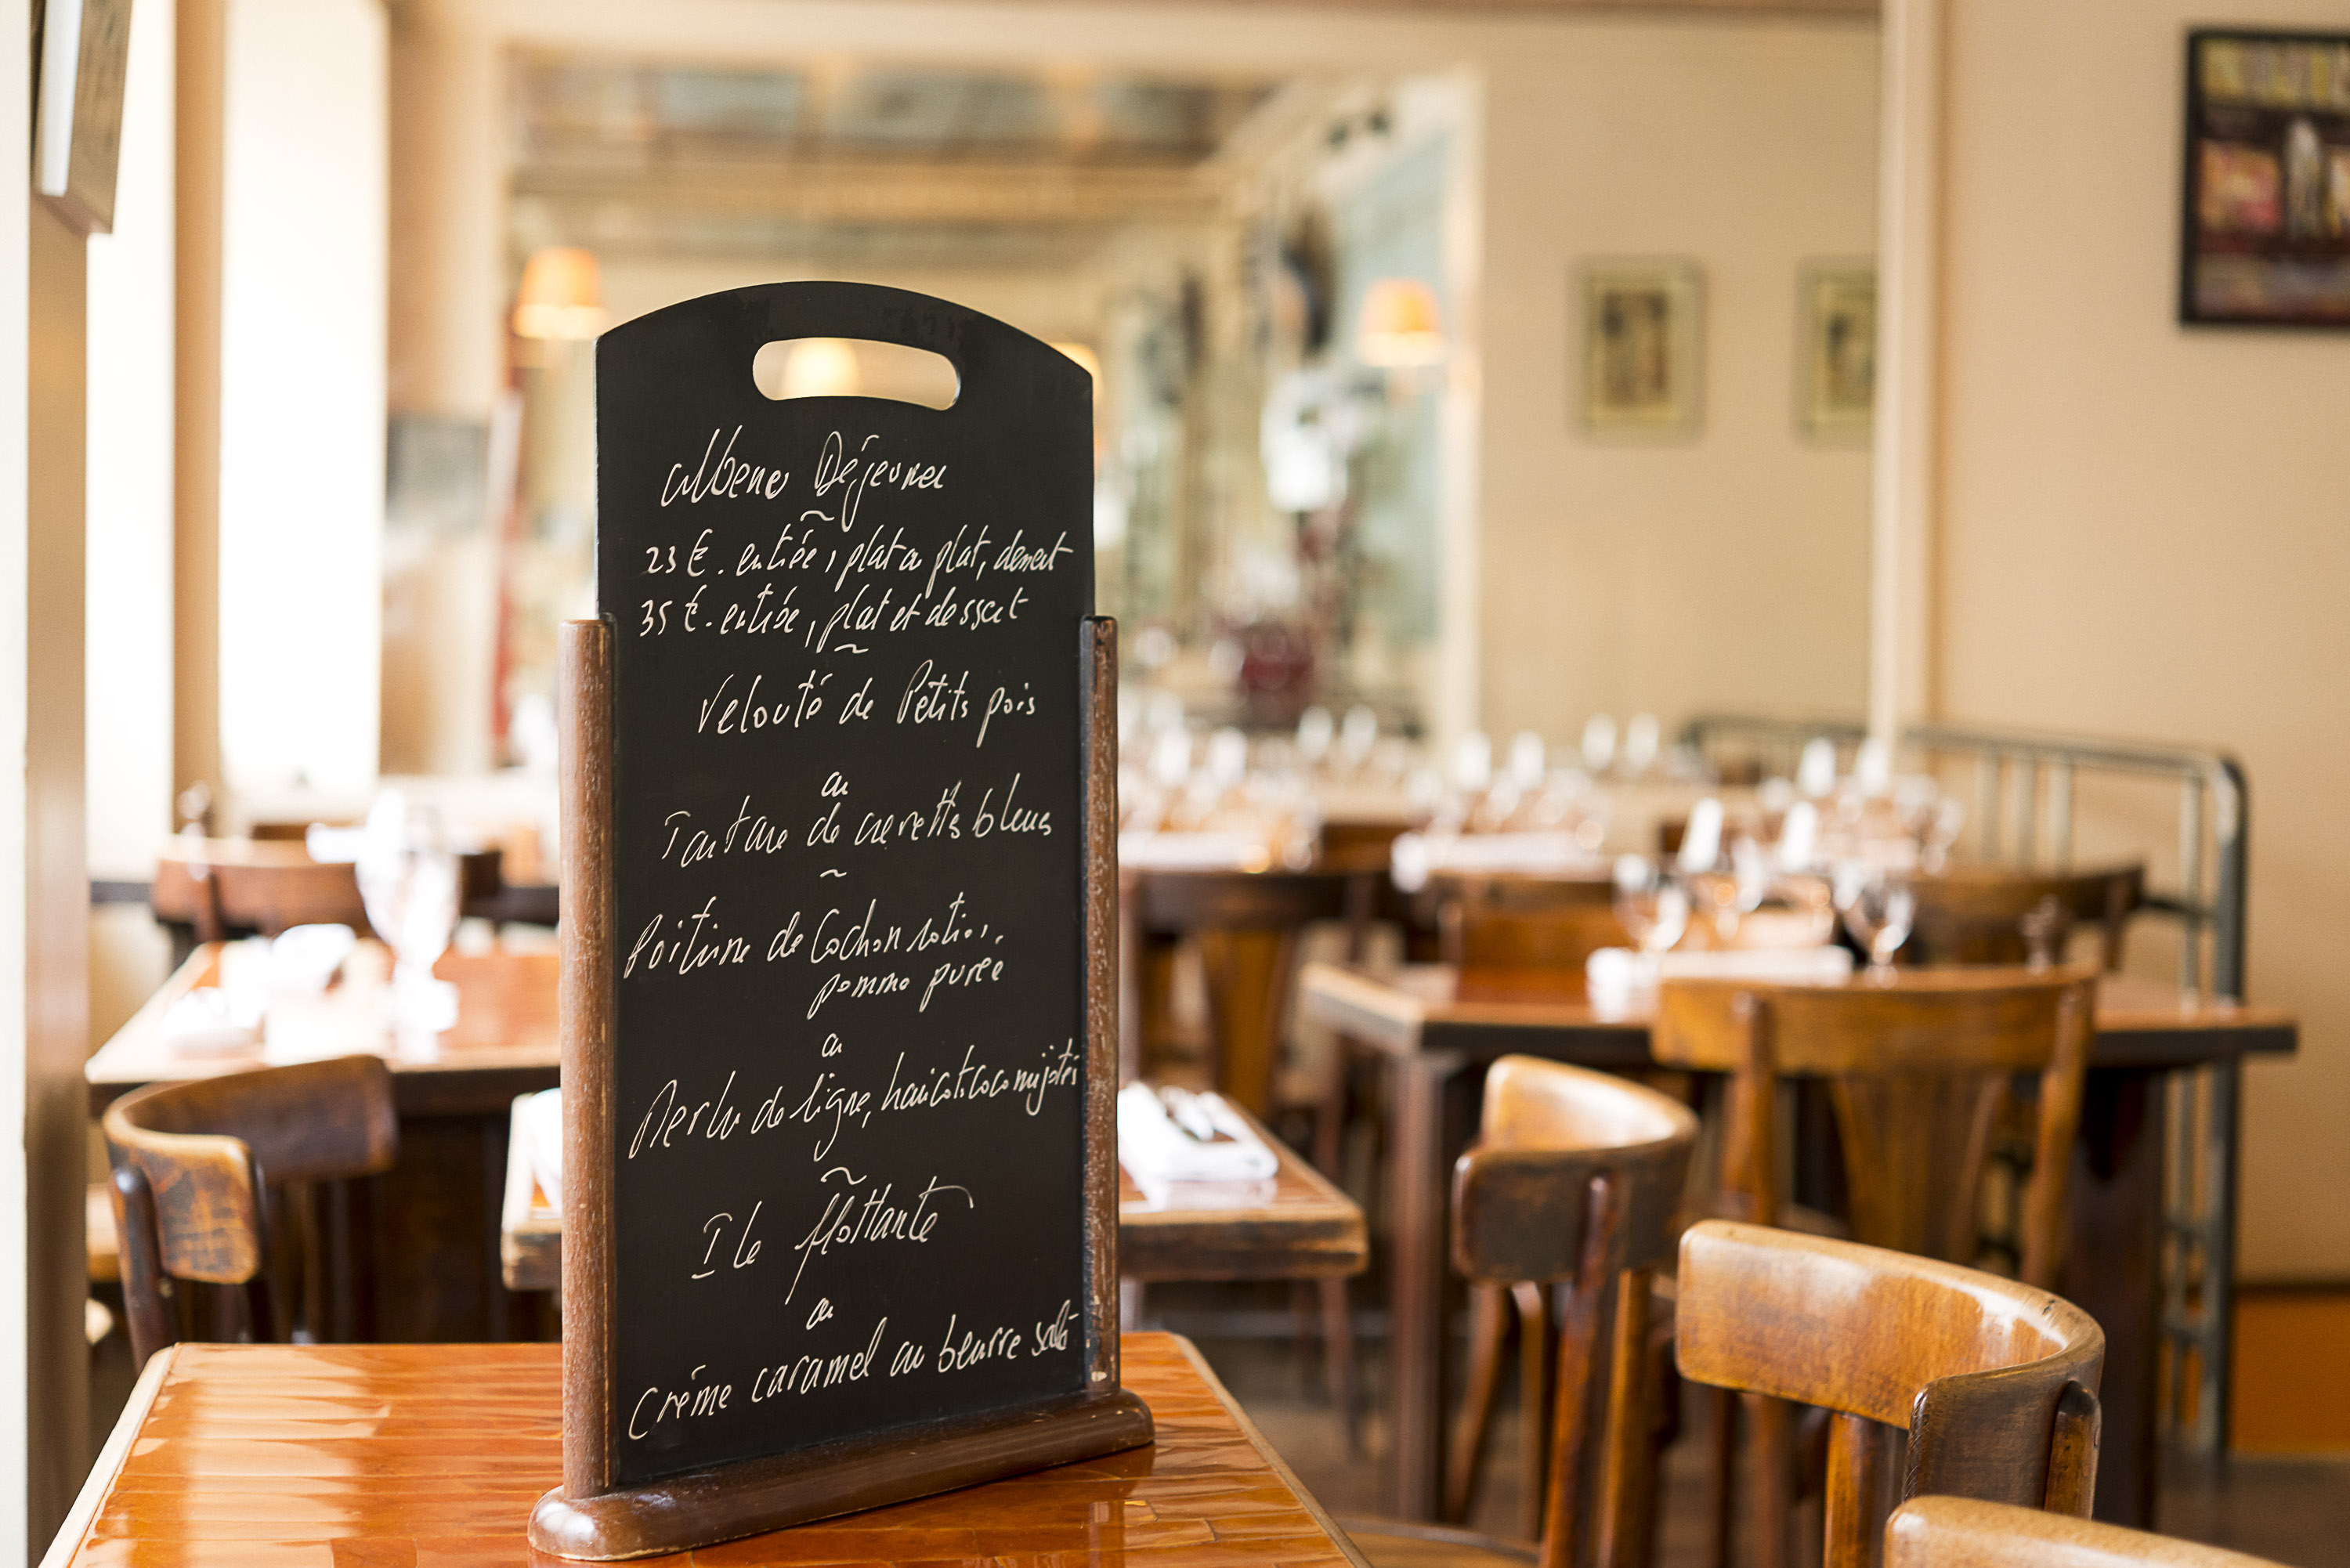 Menu Déjeuner
~
23 €. entrée, plat ou plat, dessert
35 €. entrée, plat et dessert
~
Velouté de Petits pois
ou
Tartare de crevettes bleues
~
Poitrine de Cochon rotie,
pomme purée
ou
Merlu de ligne, haricots coco mijotés
~
Ile flottante
ou
Crème caramel au beurre salé